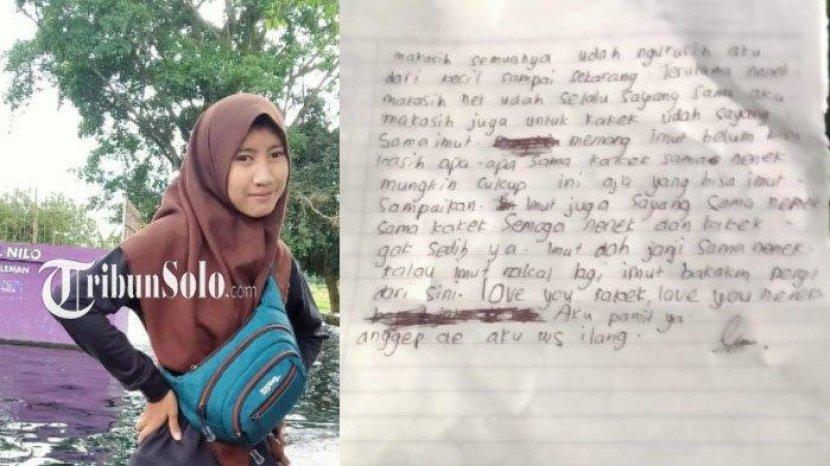 NILO
LEMAN
TribunSolo.com
makasih semuanya udah ngurusin aku
dari kecil sampai sekarang Terutama nenek.
makasih net udah selalu sayang sama aku.
makasih juga untuk kakek udah sayang
Sama imut memang imut belum bisa
kasih apa-apa sama kakek sama nenek
mungkin cukup ini aja yang bisa imut
Sampaikan. Imut juga sayang sama nenek
sama kakek. Semoga nenek dan kakek
gak sedih ya. Imut dah janji sama nenek.
kalau imut nakal lagi, imut bakalan pergi
dari sini. love you kakek, love you nenek
Aku pamit ya
anggep ae aku ws ilang.